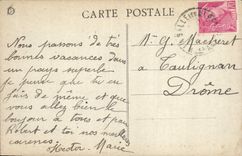 CARTE POSTALE
Nous passons de très
bonnes vacances dans
un pays superbe
je pense que le
fais de même et que
vous allez bien le
bonjour à tous et pas
Robert et toi nos meilleurs
caresses.
Hector Marie
Mr G.
à Taulignan
Drôme